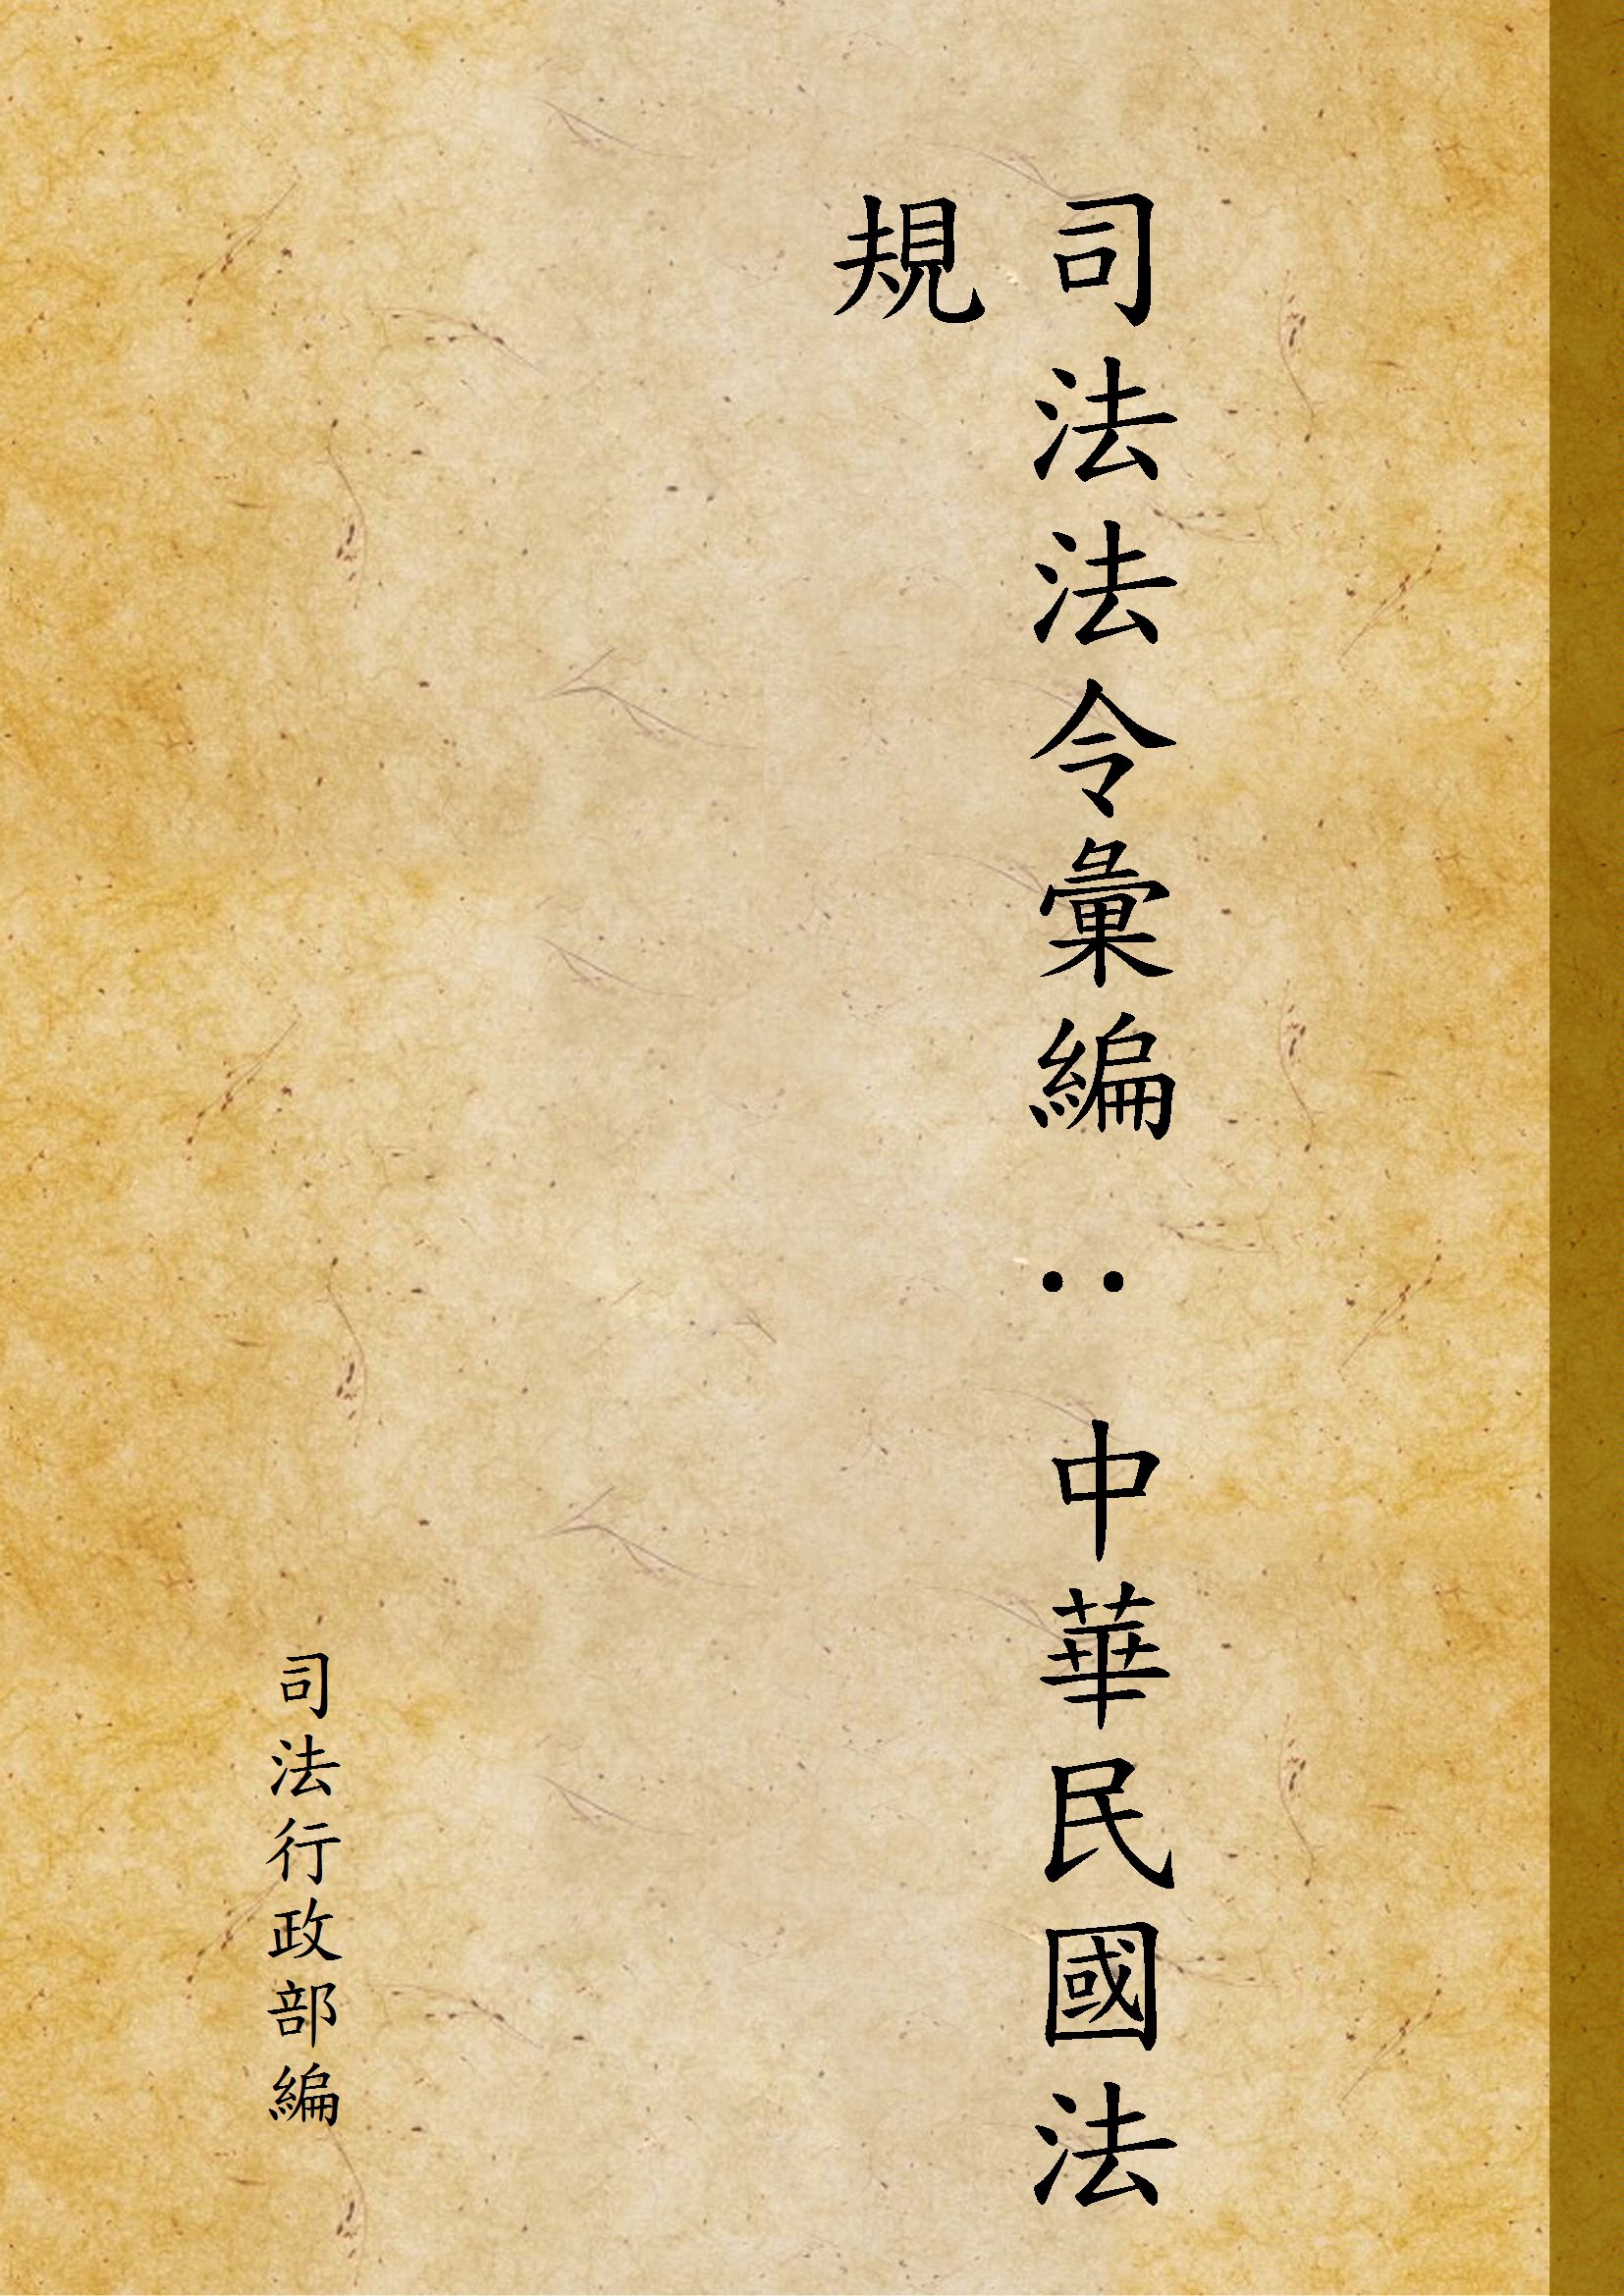 司法法令彙編：中華民國法
規
司法行政部編